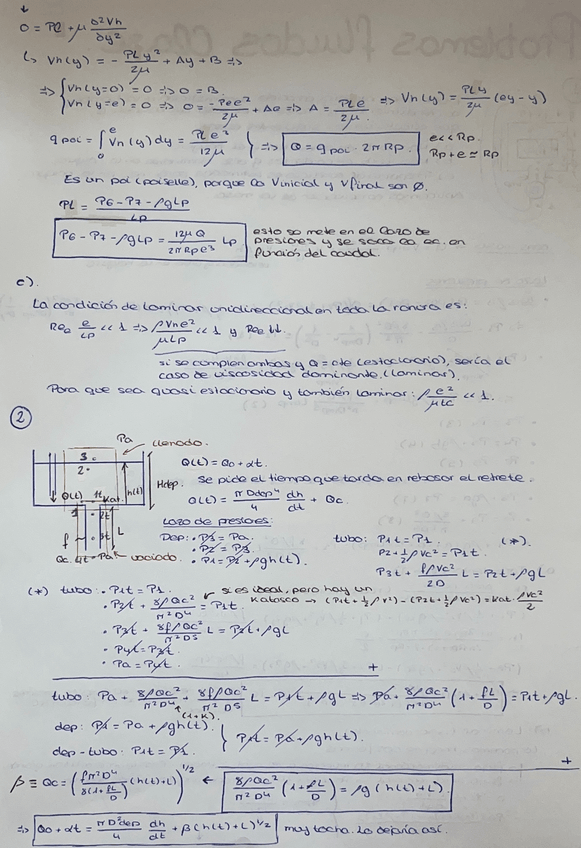 0 = Pl + μ ∂²Vn/∂y²
↳ Vn(y) = - Pl y²/2μ + Ay + B =>
=> { Vn(y=0) = 0 => 0 = B.
Vn(y=e) = 0 => 0 = -Pl e²/2μ + Ae => A = Pl e/2μ. => Vn(y) = Pl y/2μ (e-y)
q poi = ∫₀ᵉ Vn(y) dy = Pl e³/12μ } => Q = q poi · 2π Rp. e << Rp. Rp + e ≃ Rp
Es un poi (poiselle), porque la Vinicial y Vfinal son Ø.
Pl = P6 - P7 - ρgLp / Lp
P6 - P7 - ρgLp = 12μQ/2πRpe³ Lp
esto se mete en el lazo de
presiones y se saca la ec. en
función del caudal.
c).
La condición de laminar unidireccional en toda la ranura es:
Ree e/Lp << 1 => ρVne²/μLp << 1 y
si se cumplen ambas y Q = cte (estacionario), sería el
caso de viscosidad dominante (laminar).
Para que sea quasi estacionario y también laminar: ρ e²/μtc << 1.
2
Pa llenado.
3.
2.
Q(t) 1t Kat. h(t) Hdep.
1 2t
f 3t L
Qc 4t Pa vaciado.
Q(t) = Q0 + αt.
Se pide el tiempo que tarda en rebosar el retrete.
Q(t) = π Ddep²/4 dh/dt + Qc.
Lazo de presiones:
Dep: · P3 = Pa.
· P2 = P3.
· P1 = P2 + ρgh(t).
tubo: P1t = P1. (*).
P2 + 1/2 ρVc² = P1t
P3t + fρVc²/2D L = P2t + ρgL
(*) tubo: · P1t = P1. si es ideal, pero hay un
· P2t + 8ρQc²/π²D⁴ = P1t. Katasco → (P1t + 1/2 ρV²) - (P2t + 1/2 ρVc²) = Kat. ρVc²/2
· P3t + 8fρQc²/π²D⁵ L = P2t + ρgL
· P4t = P3t.
· Pa = P4t.
+
tubo: Pa + 8ρQc²/π²D⁴ + 8fρQc²/π²D⁵ L = P1t + ρgL => Pa + 8ρQc²/π²D⁴ (1 + fL/D) = P1t + ρgL.
(1+K)
dep: P1 = Pa + ρgh(t).
dep-tubo: P1t = P1. } P1t = Pa + ρgh(t).
+
β ≡ Qc = (gπ²D⁴/8(1+fL/D) (h(t)+L))^1/2 ← 8ρQc²/π²D⁴ (1 + fL/D) = ρg (h(t)+L)
=> Q0 + αt = πD²dep/4 dh/dt + β(h(t)+L)^1/2 muy tocha. Lo dejaría así.